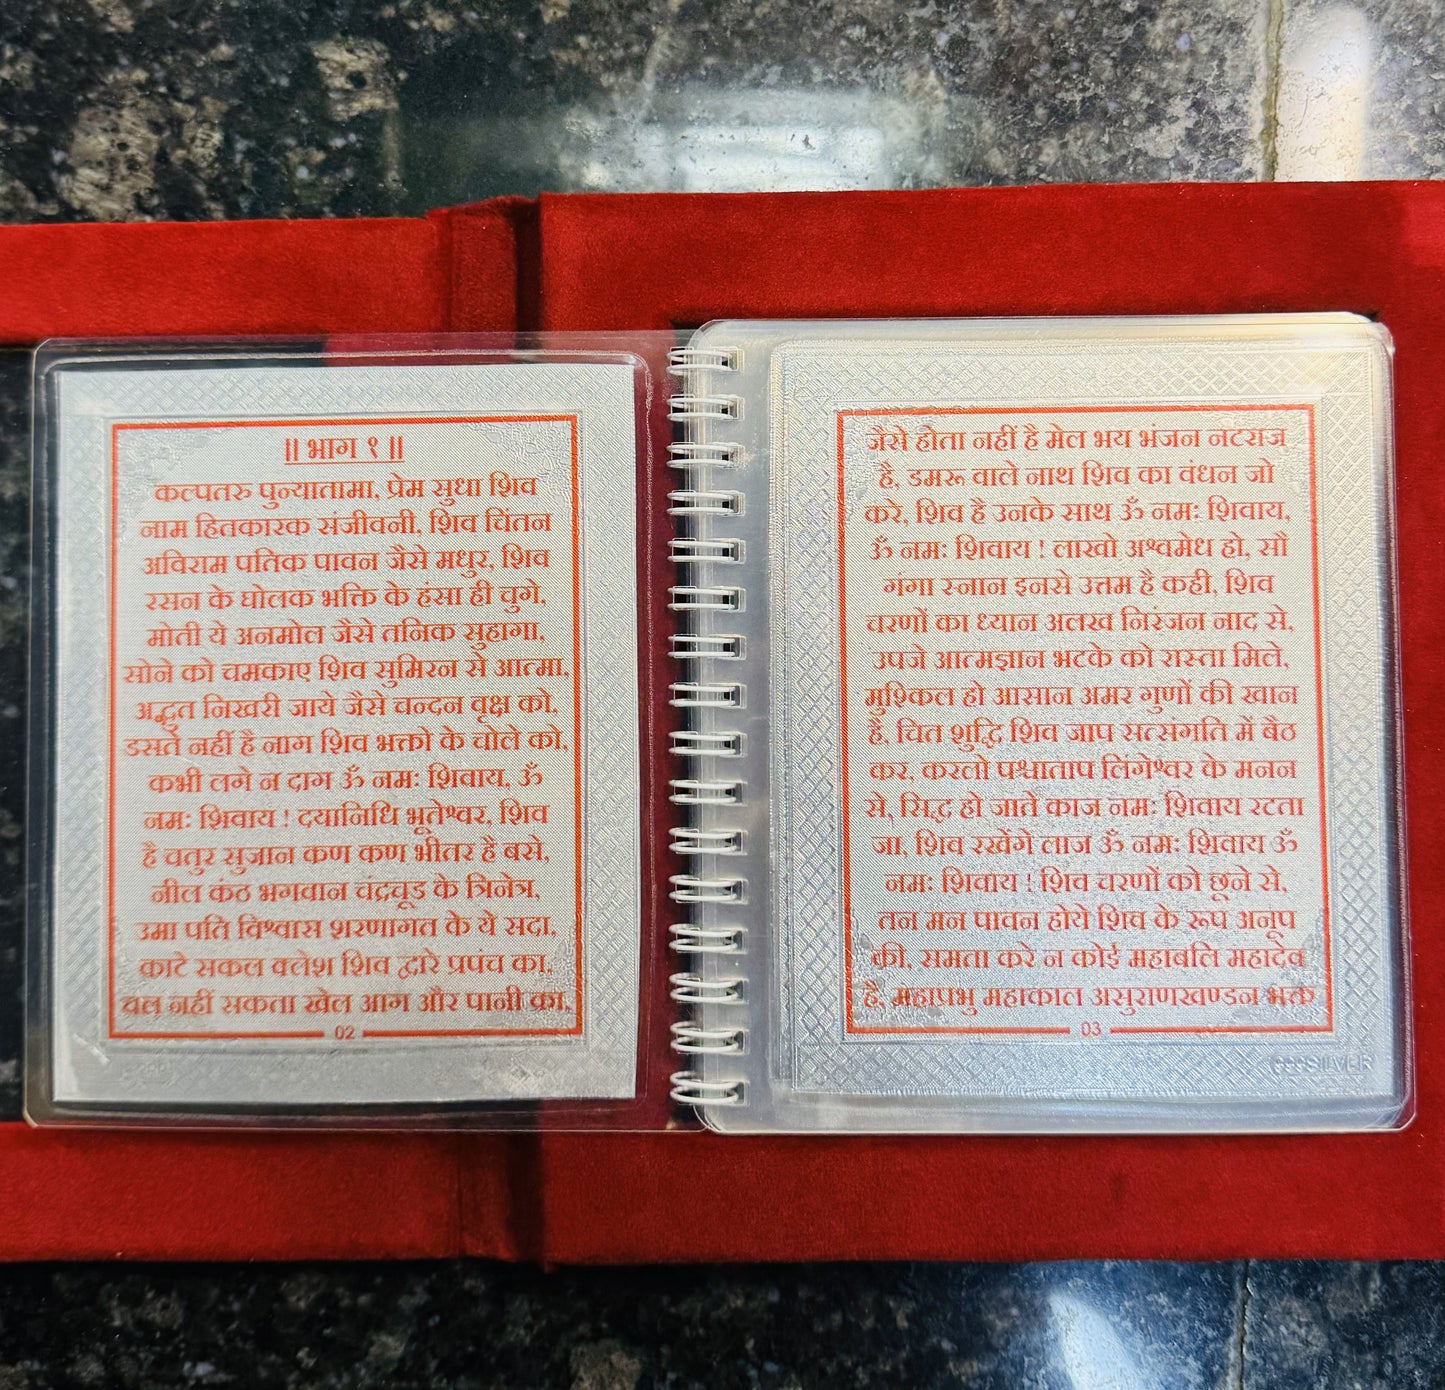 ॥ भाग १ ॥
कल्पतरु पुन्यातामा, प्रेम सुधा शिव
नाम हितकारक संजीवनी, शिव चिंतन
अविराम पतिक पावन जैसे मधुर, शिव
रसन के घोलक भक्ति के हंसा ही चुगे,
मोती ये अनमोल जैसे तनिक सुहागा,
सोने को चमकाए शिव सुमिरन से आत्मा,
अद्भुत निखरी जाये जैसे चन्दन वृक्ष को,
डसते नहीं है नाग शिव भक्तो के चोले को,
कभी लगे न दाग ॐ नमः शिवाय, ॐ
नमः शिवाय ! दयानिधि भूतेश्वर, शिव
है चतुर सुजान कण कण भीतर है बसे,
नील कंठ भगवान चंद्रचूड के त्रिनेत्र,
उमा पति विश्वास शरणागत के ये सदा,
काटे सकल क्लेश शिव द्वारे प्रपंच का,
चल नहीं सकता खेल आग और पानी का,
02
जैसे होता नहीं है मेल भय भंजन नटराज
है, डमरू वाले नाथ शिव का वंधन जो
करे, शिव है उनके साथ ॐ नमः शिवाय,
ॐ नमः शिवाय ! लाखो अश्वमेध हो, सौ
गंगा स्नान इनसे उत्तम है कही, शिव
चरणों का ध्यान अलख निरंजन नाद से,
उपजे आत्मज्ञान भटके को रास्ता मिले,
मुश्किल हो आसान अमर गुणों की खान
है, चित शुद्धि शिव जाप सत्संगति में बैठ
कर, करलो पश्चाताप लिंगेश्वर के मनन
से, सिद्ध हो जाते काज नमः शिवाय रटता
जा, शिव रखेंगे लाज ॐ नमः शिवाय ॐ
नमः शिवाय ! शिव चरणों को छूने से,
तन मन पावन होये शिव के रूप अनूप
की, समता करे न कोई महाबलि महादेव
है, महाप्रभु महाकाल असुराणखण्डन भक्त
03
999 SILVER